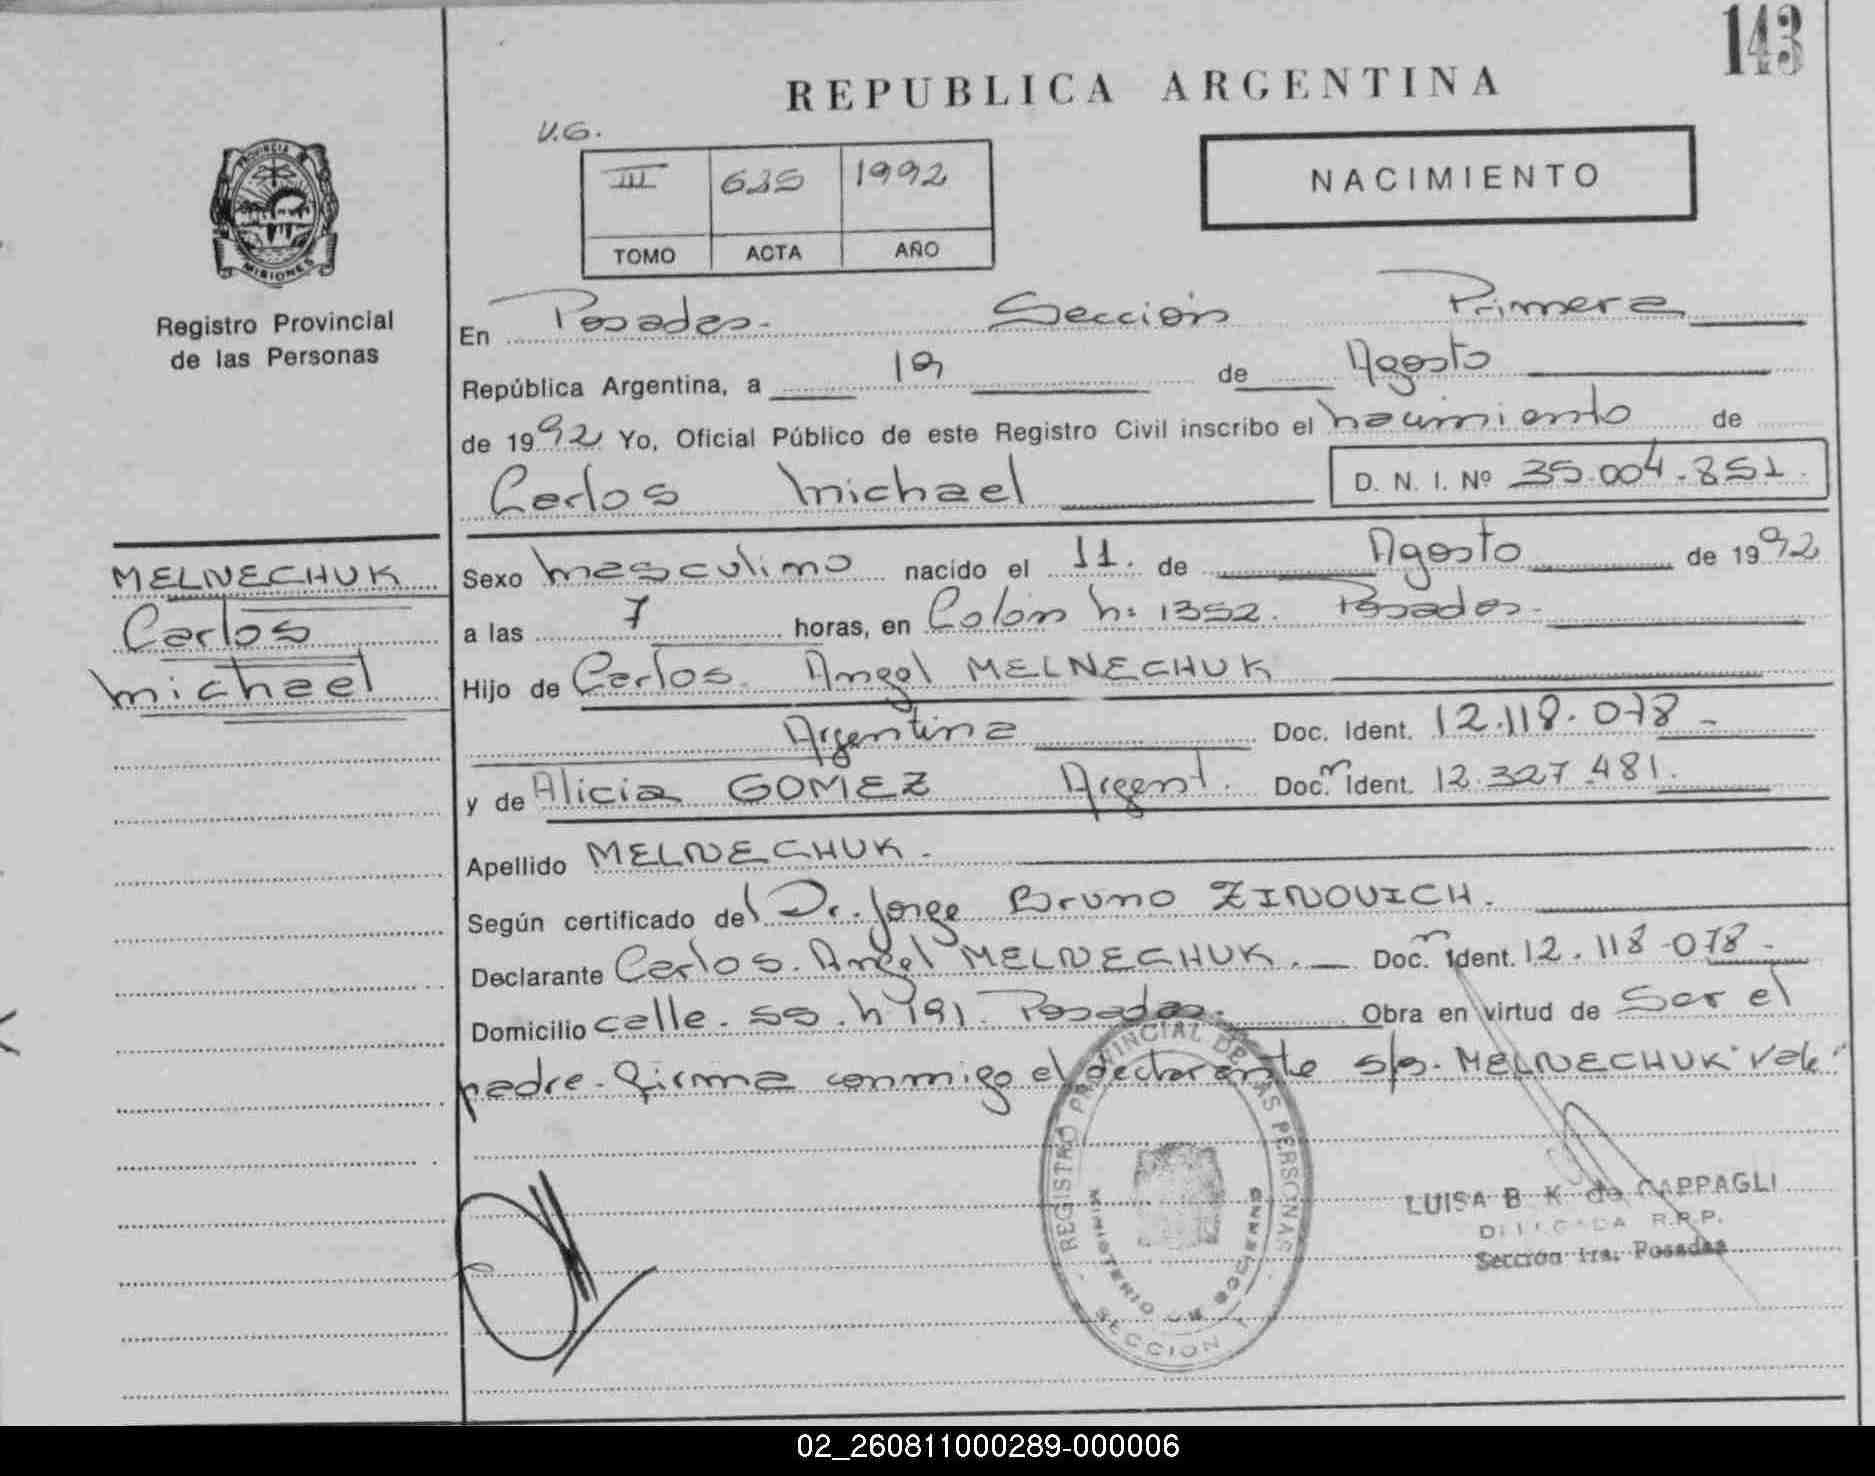 143
REPUBLICA ARGENTINA
V.G.
III 625 1992
TOMO ACTA AÑO
NACIMIENTO
PROVINCIA
MISIONES
Registro Provincial
de las Personas
En Posadas. Sección Primera
República Argentina, a 19 de Agosto
de 1992 Yo, Oficial Público de este Registro Civil inscribo el nacimiento de
Carlos Michael D. N. I. Nº 35.004.851.
MELNECHUK
Carlos
Michael
Sexo masculino nacido el 11. de Agosto de 1992
a las 7 horas, en Colón n: 1352. Posadas.
Hijo de Carlos. Angel MELNECHUK
Argentina Doc. Ident. 12.118.078-
y de Alicia GOMEZ Argent. Doc. Ident. 12.327.481.
Apellido MELNECHUK.
Según certificado del Dr. Jorge Bruno ZINOVICH.
Declarante Carlos. Angel MELNECHUK. Doc. Ident. 12.118.078-
Domicilio calle. 55. n 191. Posadas. Obra en virtud de Ser el
padre. firma conmigo el declarante s/p. MELNECHUK "Vale"
REGISTRO PROVINCIAL DE LAS PERSONAS
MINISTERIO DE GOBIERNO
SECCION 1
LUISA B K de CAPPAGLI
DELEGADA R.P.P.
Sección 1ra. Posadas
02_260811000289-000006